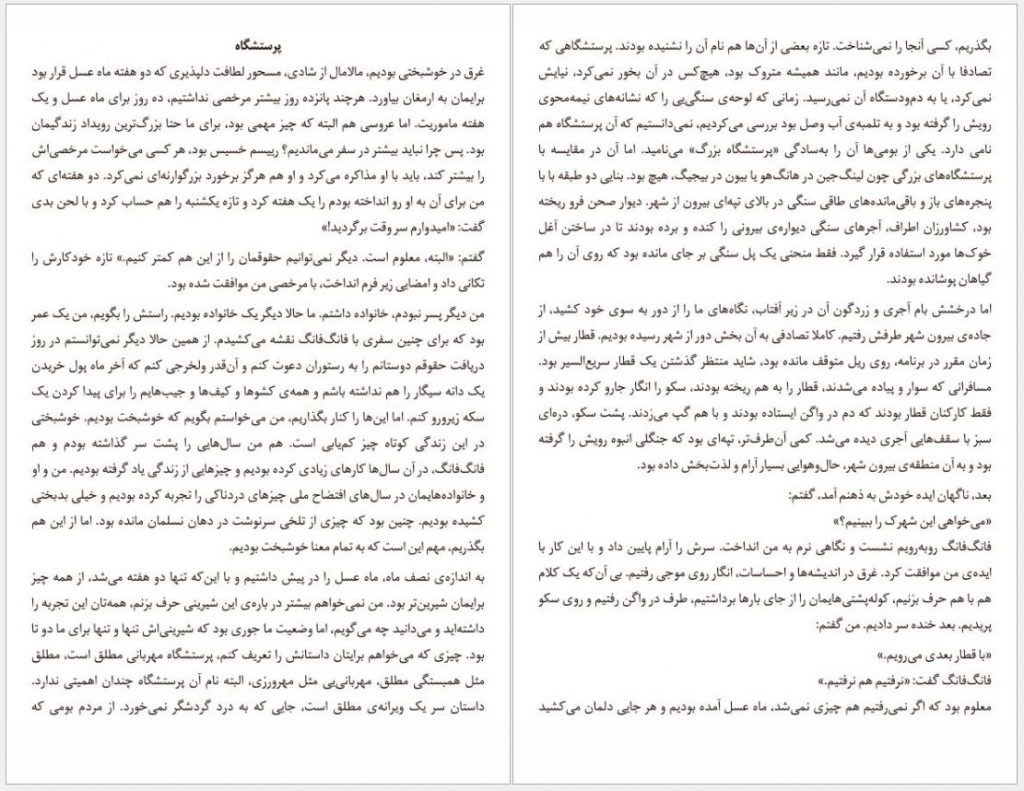 پرستشگاه
غرق در خوشبختی بودیم، مالامال از شادی، مسحور لطافت دلپذیری که دو هفته ماه عسل قرار بود
برایمان به ارمغان بیاورد. هرچند پانزده روز بیشتر مرخصی نداشتیم، ده روز برای ماه عسل و یک
هفته ماموریت. اما عروسی هم البته که چیز مهمی بود، برای ما حتا بزرگ‌ترین رویداد زندگیمان
بود. پس چرا نباید بیشتر در سفر می‌ماندیم؟ رییسم خسیس بود، هر کسی می‌خواست مرخصی‌اش
را بیشتر کند، باید با او مذاکره می‌کرد و او هم هرگز برخورد بزرگوارنه‌ای نمی‌کرد. دو هفته‌ای که
من برای آن به او رو انداخته بودم را یک هفته کرد و تازه یکشنبه را هم حساب کرد و با لحن بدی
گفت: «امیدوارم سر وقت برگردید!»
گفتم: «البته، معلوم است. دیگر نمی‌توانیم حقوقمان را از این هم کمتر کنیم.» تازه خودکارش را
تکانی داد و امضایی زیر فرم انداخت، با مرخصی من موافقت شده بود.
من دیگر پسر نبودم، خانواده داشتم. ما حالا دیگر یک خانواده بودیم. راستش را بگویم، من یک عمر
بود که برای چنین سفری با فانگ‌فانگ نقشه می‌کشیدم. از همین حالا دیگر نمی‌توانستم در روز
دریافت حقوقم دوستانم را به رستوران دعوت کنم و آن‌قدر ولخرجی کنم که آخر ماه پول خریدن
یک دانه سیگار را هم نداشته باشم و همه‌ی کشوها و کیف‌ها و جیب‌هایم را برای پیدا کردن یک
سکه زیرورو کنم. اما این‌ها را کنار بگذاریم، من می‌خواستم بگویم که خوشبخت بودیم. خوشبختی
در این زندگی کوتاه چیز کم‌یابی است. هم من سال‌هایی را پشت سر گذاشته بودم و هم
فانگ‌فانگ، در آن سال‌ها کارهای زیادی کرده بودیم و چیزهایی از زندگی یاد گرفته بودیم. من و او
و خانواده‌هایمان در سال‌های افتضاح ملی چیزهای دردناکی را تجربه کرده بودیم و خیلی بدبختی
کشیده بودیم. چنین بود که چیزی از تلخی سرنوشت در دهان نسلمان مانده بود. اما از این هم
بگذریم، مهم این است که به تمام معنا خوشبخت بودیم.
به اندازه‌ی نصف ماه، ماه عسل را در پیش داشتیم و با این‌که تنها دو هفته می‌شد، از همه چیز
برایمان شیرین‌تر بود. من نمی‌خواهم بیشتر در باره‌ی این شیرینی حرف بزنم، همه‌تان این تجربه را
داشته‌اید و می‌دانید چه می‌گویم، اما وضعیت ما جوری بود که شیرینی‌اش تنها و تنها برای ما دو تا
بود. چیزی که می‌خواهم برایتان داستانش را تعریف کنم، پرستشگاه مهربانی مطلق است، مطلق
مثل همبستگی مطلق، مهربانی‌یی مثل مهرورزی، البته نام آن پرستشگاه چندان اهمیتی ندارد.
داستان سر یک ویرانه‌ی مطلق است، جایی که به درد گردشگر نمی‌خورد. از مردم بومی که
بگذریم، کسی آنجا را نمی‌شناخت. تازه بعضی از آن‌ها هم نام آن را نشنیده بودند. پرستشگاهی که
تصادفا با آن برخورده بودیم، مانند همیشه متروک بود، هیچ‌کس در آن بخور نمی‌کرد، نیایش
نمی‌کرد، یا به دم‌ودستگاه آن نمی‌رسید. زمانی که لوحه‌ی سنگی‌یی را که نشانه‌های نیمه‌محوی
رویش را گرفته بود و به تلمبه‌ی آب وصل بود بررسی می‌کردیم، نمی‌دانستیم که آن پرستشگاه هم
نامی دارد. یکی از بومی‌ها آن را به‌سادگی «پرستشگاه بزرگ» می‌نامید. اما آن در مقایسه با
پرستشگاه‌های بزرگی چون لینگ‌جین در هانگ‌هو یا بیون در بیجیگ، هیچ بود. بنایی دو طبقه با با
پنجره‌های باز و باقی‌مانده‌های طاقی سنگی در بالای تپه‌ای بیرون از شهر. دیوار صحن فرو ریخته
بود، کشاورزان اطراف، آجرهای سنگی دیواره‌ی بیرونی را کنده و برده بودند تا در ساختن آغل
خوک‌ها مورد استفاده قرار گیرد. فقط منحنی یک پل سنگی بر جای مانده بود که روی آن را هم
گیاهان پوشانده بودند.
اما درخشش بام آجری و زردگون آن در زیر آفتاب، نگاه‌های ما را از دور به سوی خود کشید، از
جاده‌ی بیرون شهر طرفش رفتیم. کاملا تصادفی به آن بخش دور از شهر رسیده بودیم. قطار بیش از
زمان مقرر در برنامه، روی ریل متوقف مانده بود، شاید منتظر گذشتن یک قطار سریع‌السیر بود.
مسافرانی که سوار و پیاده می‌شدند، قطار را به هم ریخته بودند، سکو را انگار جارو کرده بودند و
فقط کارکنان قطار بودند که دم در واگن ایستاده بودند و با هم گپ می‌زدند. پشت سکو، دره‌ای
سبز با سقف‌هایی آجری دیده می‌شد. کمی آن‌طرف‌تر، تپه‌ای بود که جنگلی انبوه رویش را گرفته
بود و به آن منطقه‌ی بیرون شهر، حال‌وهوایی بسیار آرام و لذت‌بخش داده بود.
بعد، ناگهان ایده خودش به ذهنم آمد، گفتم:
«می‌خواهی این شهرک را ببینیم؟»
فانگ‌فانگ روبه‌رویم نشست و نگاهی نرم به من انداخت. سرش را آرام پایین داد و با این کار با
ایده‌ی من موافقت کرد. غرق در اندیشه‌ها و احساسات، انگار روی موجی رفتیم. بی آن‌که یک کلام
هم با هم حرف بزنیم، کوله‌پشتی‌هایمان را از جای بارها برداشتیم، طرف در واگن رفتیم و روی سکو
پریدیم. بعد خنده سر دادیم. من گفتم:
«با قطار بعدی می‌رویم.»
فانگ‌فانگ گفت: «نرفتیم هم نرفتیم.»
معلوم بود که اگر نمی‌رفتیم هم چیزی نمی‌شد، ماه عسل آمده بودیم و هر جایی دلمان می‌کشید